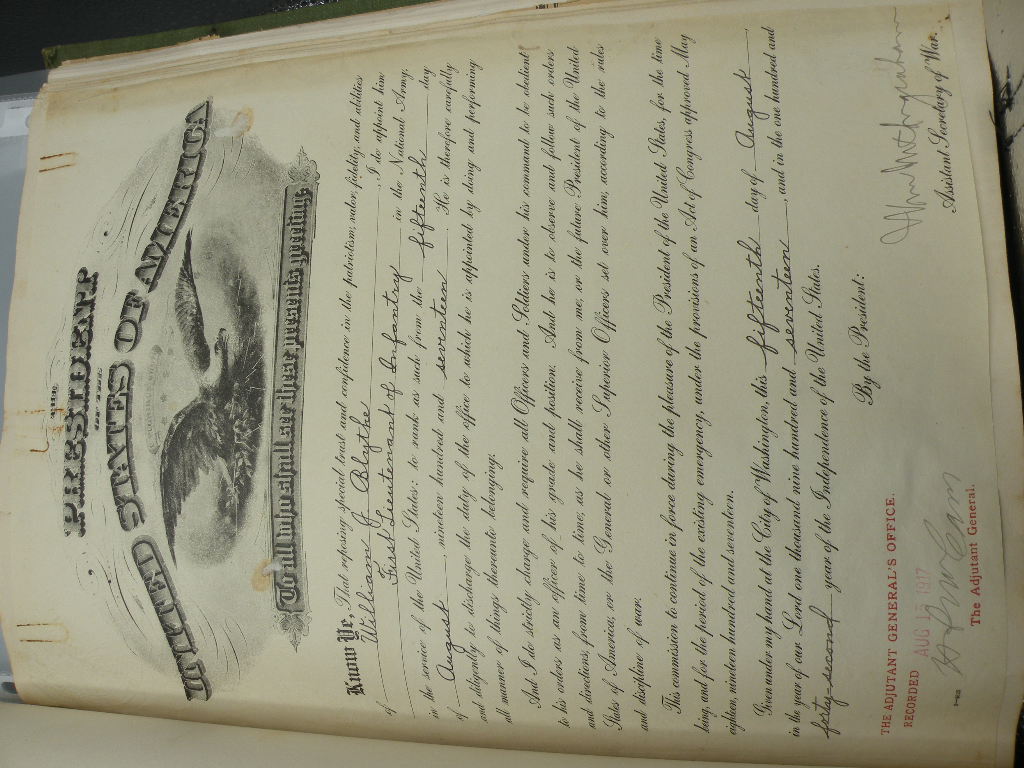 THE
PRESIDENT
OF THE
UNITED STATES OF AMERICA
To all who shall see these presents, greeting:
Know Ye, That reposing special trust and confidence in the patriotism, valor, fidelity, and abilities
of William J. Blythe, I do appoint him
First Lieutenant of Infantry in the National Army,
in the service of the United States: to rank as such from the fifteenth day
of August, nineteen hundred and seventeen. He is therefore carefully
and diligently to discharge the duty of the office to which he is appointed by doing and performing
all manner of things thereunto belonging.
And I do strictly charge and require all Officers and Soldiers under his command to be obedient
to his orders as an officer of his grade and position. And he is to observe and follow such orders
and directions, from time to time, as he shall receive from me, or the future President of the United
States of America, or the General or other Superior Officers set over him, according to the rules
and discipline of war.
This commission to continue in force during the pleasure of the President of the United States, for the time
being, and for the period of the existing emergency, under the provisions of an Act of Congress approved May
eighteen, nineteen hundred and seventeen.
Given under my hand at the City of Washington, this fifteenth day of August,
in the year of our Lord one thousand nine hundred and seventeen, and in the one hundred and
forty-second year of the Independence of the United States.
By the President:
THE ADJUTANT GENERAL'S OFFICE.
RECORDED AUG 15 1917
The Adjutant General.
Assistant Secretary of War.